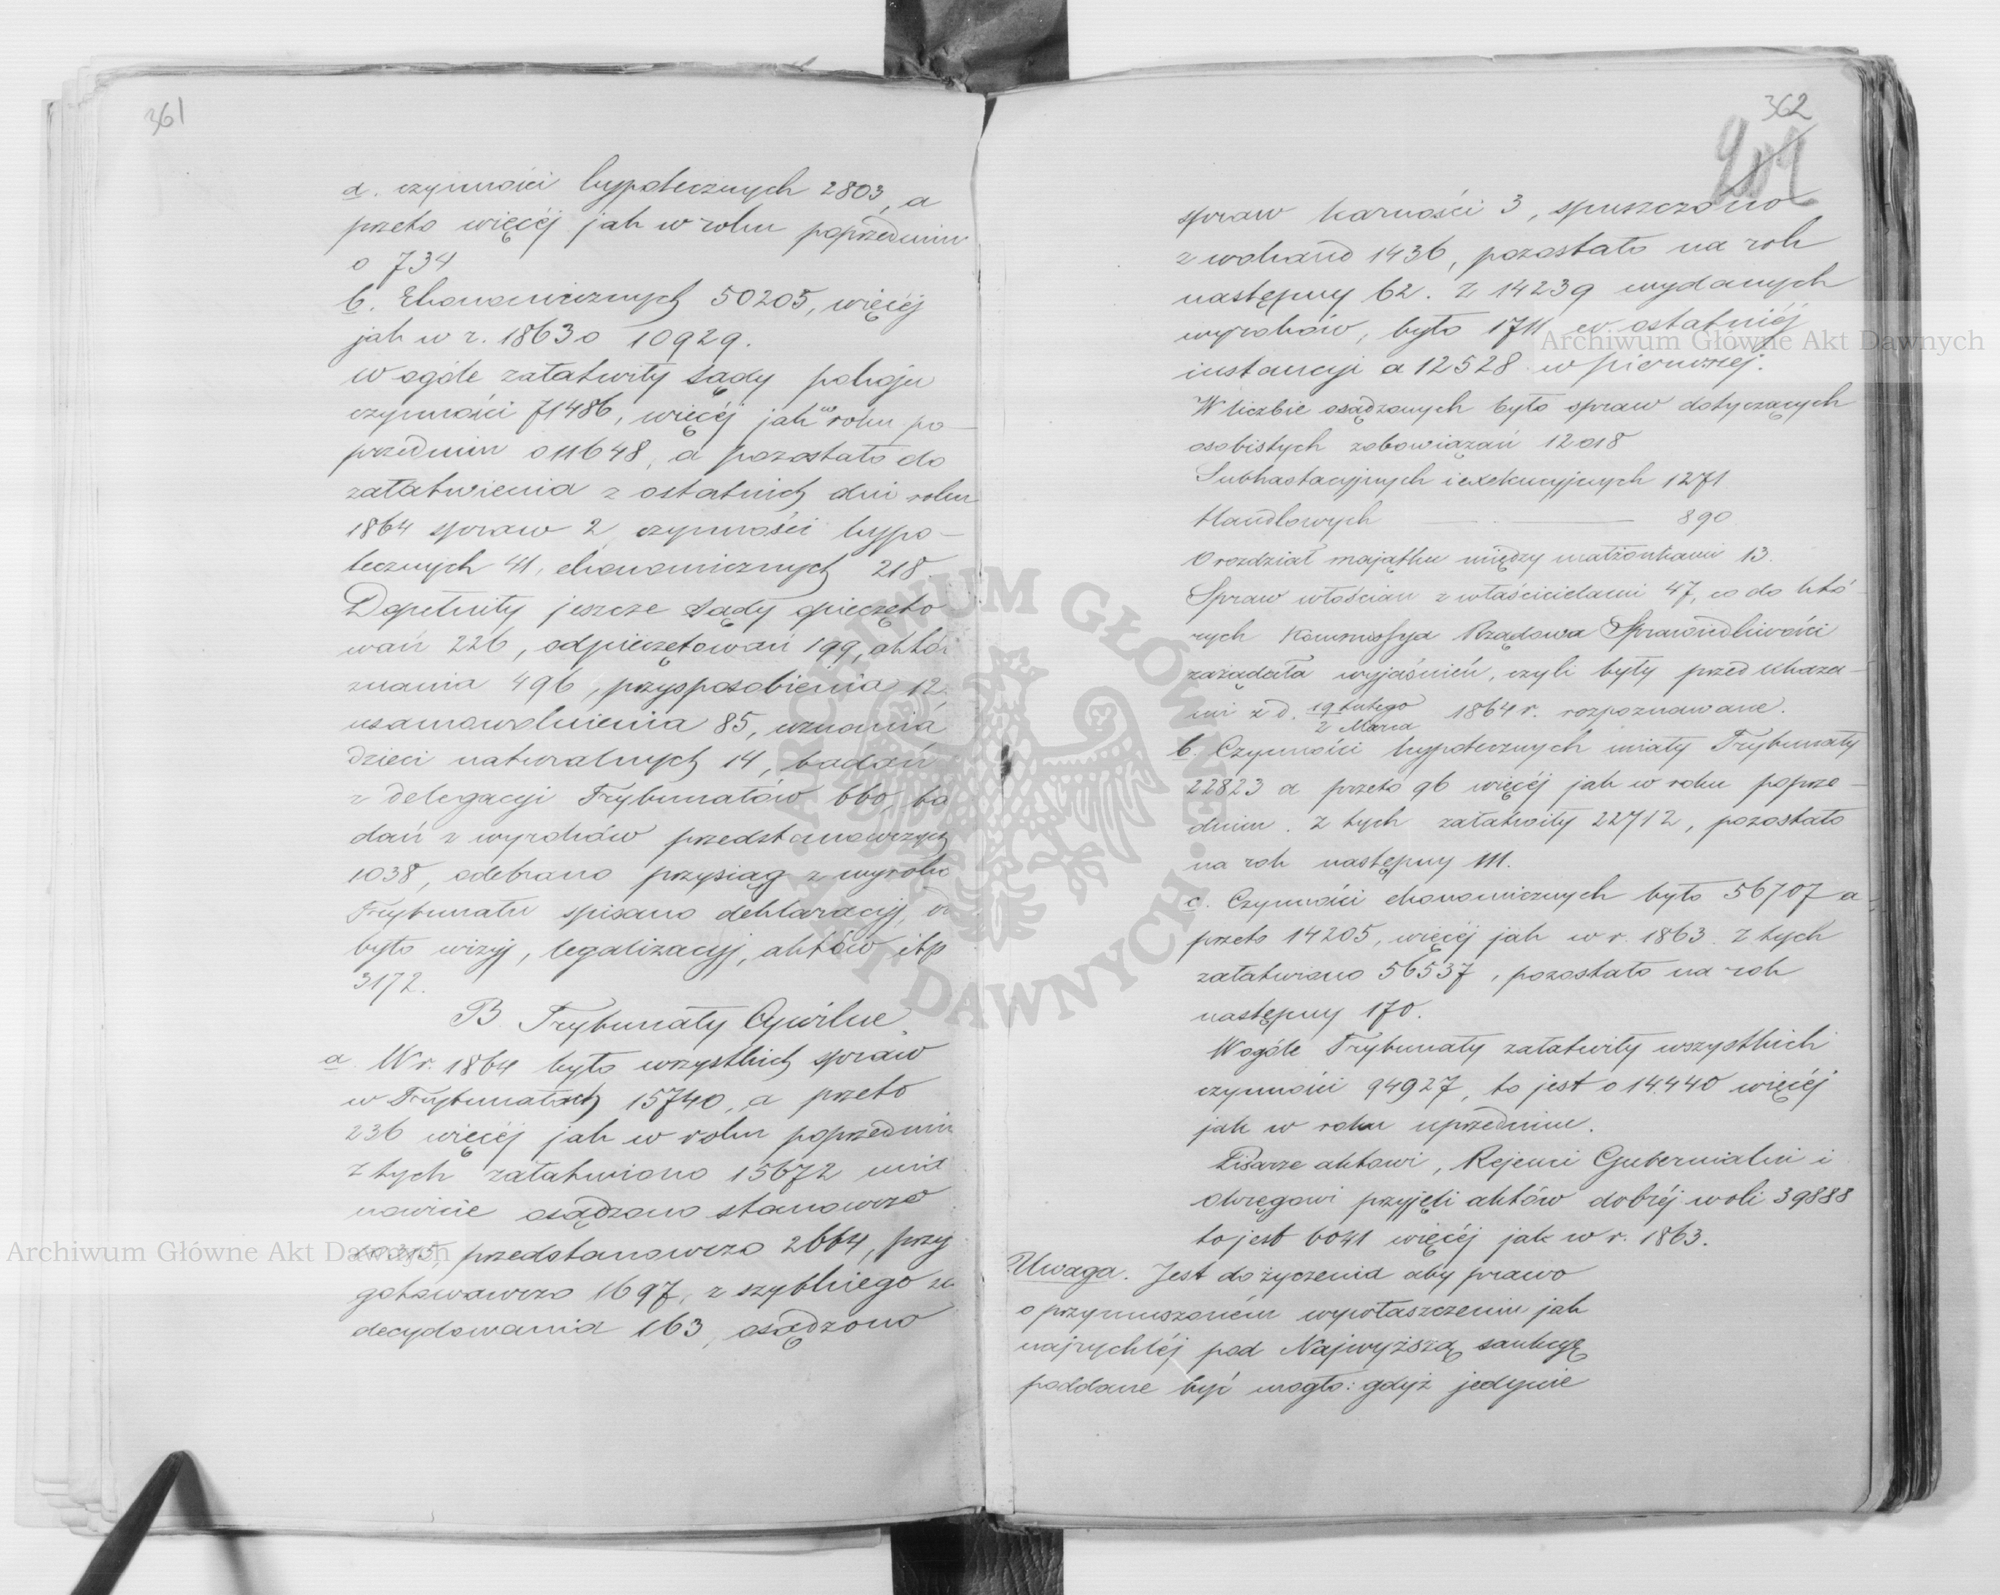 361
a. czynności hypotecznych 2803, a
przeto więcéj jak w roku poprzednim
o 734
b. Ekonomicznych 50205, więcéj
jak w r. 1863 o 10929.
W ogóle załatwiły Sądy pokoju
czynności 71486, więcéj jak w roku po-
przednim o 11648, a pozostało do
załatwienia z ostatnich dni roku
1864 spraw 2, czynności hypo-
tecznych 41, ekonomicznych 218.
Dopełniły jeszcze Sądy opieczęto
wań 226, odpieczętowań 199, aktów
znania 496, przysposobienia 12.
usamowolnienia 85, uznania
dzieci naturalnych 14, badań
z delegacyi Trybunałów 660, ba
dań z wyroków przedstanowczych
1038, odebrano przysiąg z wyroku
Trybunału spisano deklaracyj, od
było wizyj, legalizacyj, aktów itp
3172.
B Trybunały Cywilne.
a. W r. 1864 było wszystkich spraw
w Trybunałach 15740, a przeto
236 więcéj jak w roku poprzednim
z tych załatwiono 15672 mia
nowicie osądzono stanowczo
przedstanowczo 2664, przy
gotowawczo 1697, z szybkiego za
decydowania 163, osądzono
362
204
spraw karności 3, spuszczono
z wokand 1436, pozostało na rok
następny 62. Z 14239 wydanych
wyroków, było 1711 w ostatniéj
instancyi a 12528 w pierwszej.
W liczbie osądzonych było spraw dotyczących
osobistych zobowiązań 12018
Subhastacyjnych i exekucyjnych 1271
Handlowych ——— 890
O rozdział majątku między małżonkami 13.
Spraw włościan z właścicielami 47, co do któ-
rych Kommissya Rządowa Sprawiedliwości
zażądała wyjaśnień, czyli były przed Ukaza-
mi z d. 19 Lutego / 2 Marca 1864 r. rozpoznawane.
b. Czynności hypotecznych miały Trybunały
22823 a przeto 96 więcéj jak w roku poprze-
dnim. Z tych załatwiły 22712, pozostało
na rok następny 111.
c. Czynności ekonomicznych było 56707 a
przeto 14205, więcéj jak w r. 1863. Z tych
załatwiono 56537, pozostało na rok
następny 170.
W ogóle Trybunały załatwiły wszystkich
czynności 94927, to jest o 14.440 więcéj
jak w roku uprzednim.
Pisarze aktowi, Rejenci Gubernialni i
Okręgowi przyjęli aktów dobréj woli 39888
to jest 6041 więcéj jak w r. 1863.
Uwaga. Jest do życzenia aby prawo
o przymuszoném wywłaszczeniu jak
najrychléj pod Najwyższą sankcyę
poddane być mogło: gdyż jedynie
Archiwum Główne Akt Dawnych
Archiwum Główne Akt Dawnych
ARCHIWUM GŁÓWNE AKT DAWNYCH